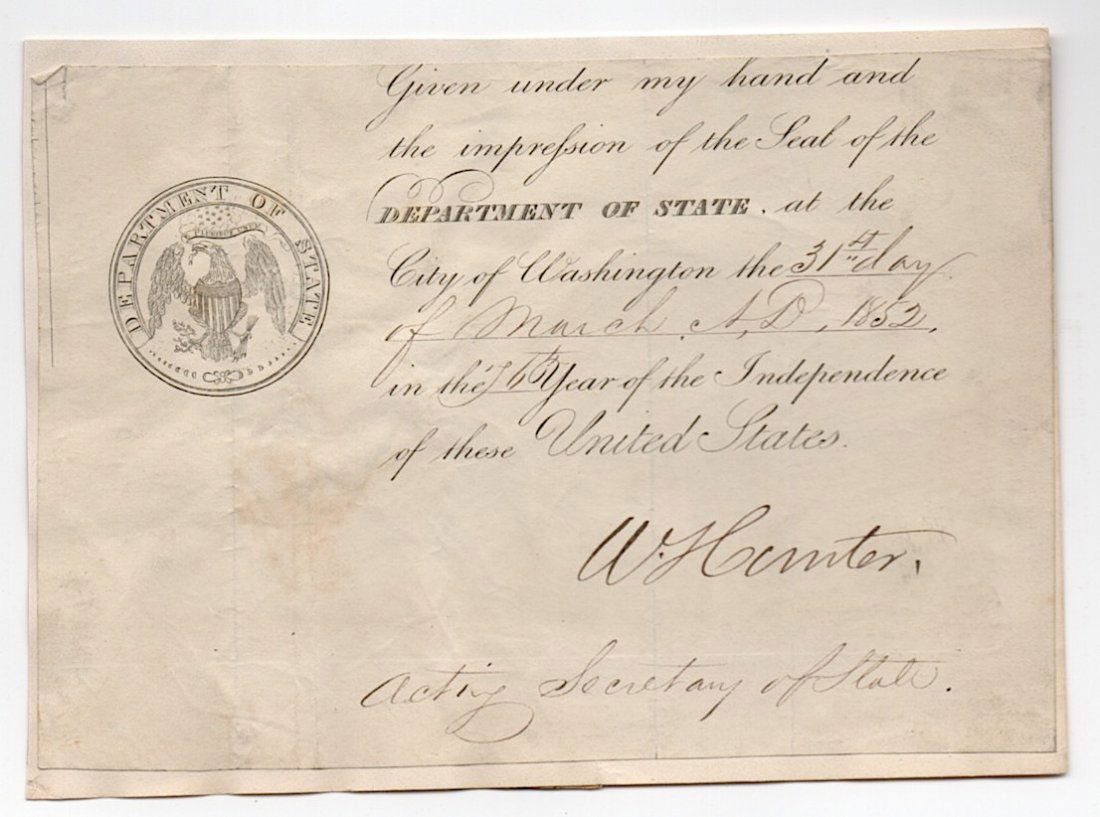 DEPARTMENT OF STATE
E PLURIBUS UNUM
Given under my hand and
the impreſsion of the Seal of the
DEPARTMENT OF STATE, at the
City of Washington the 31st day
of March, A, D, 1852,
in the 76th Year of the Independence
of these United States.
W. Hunter.
Acting Secretary of State.